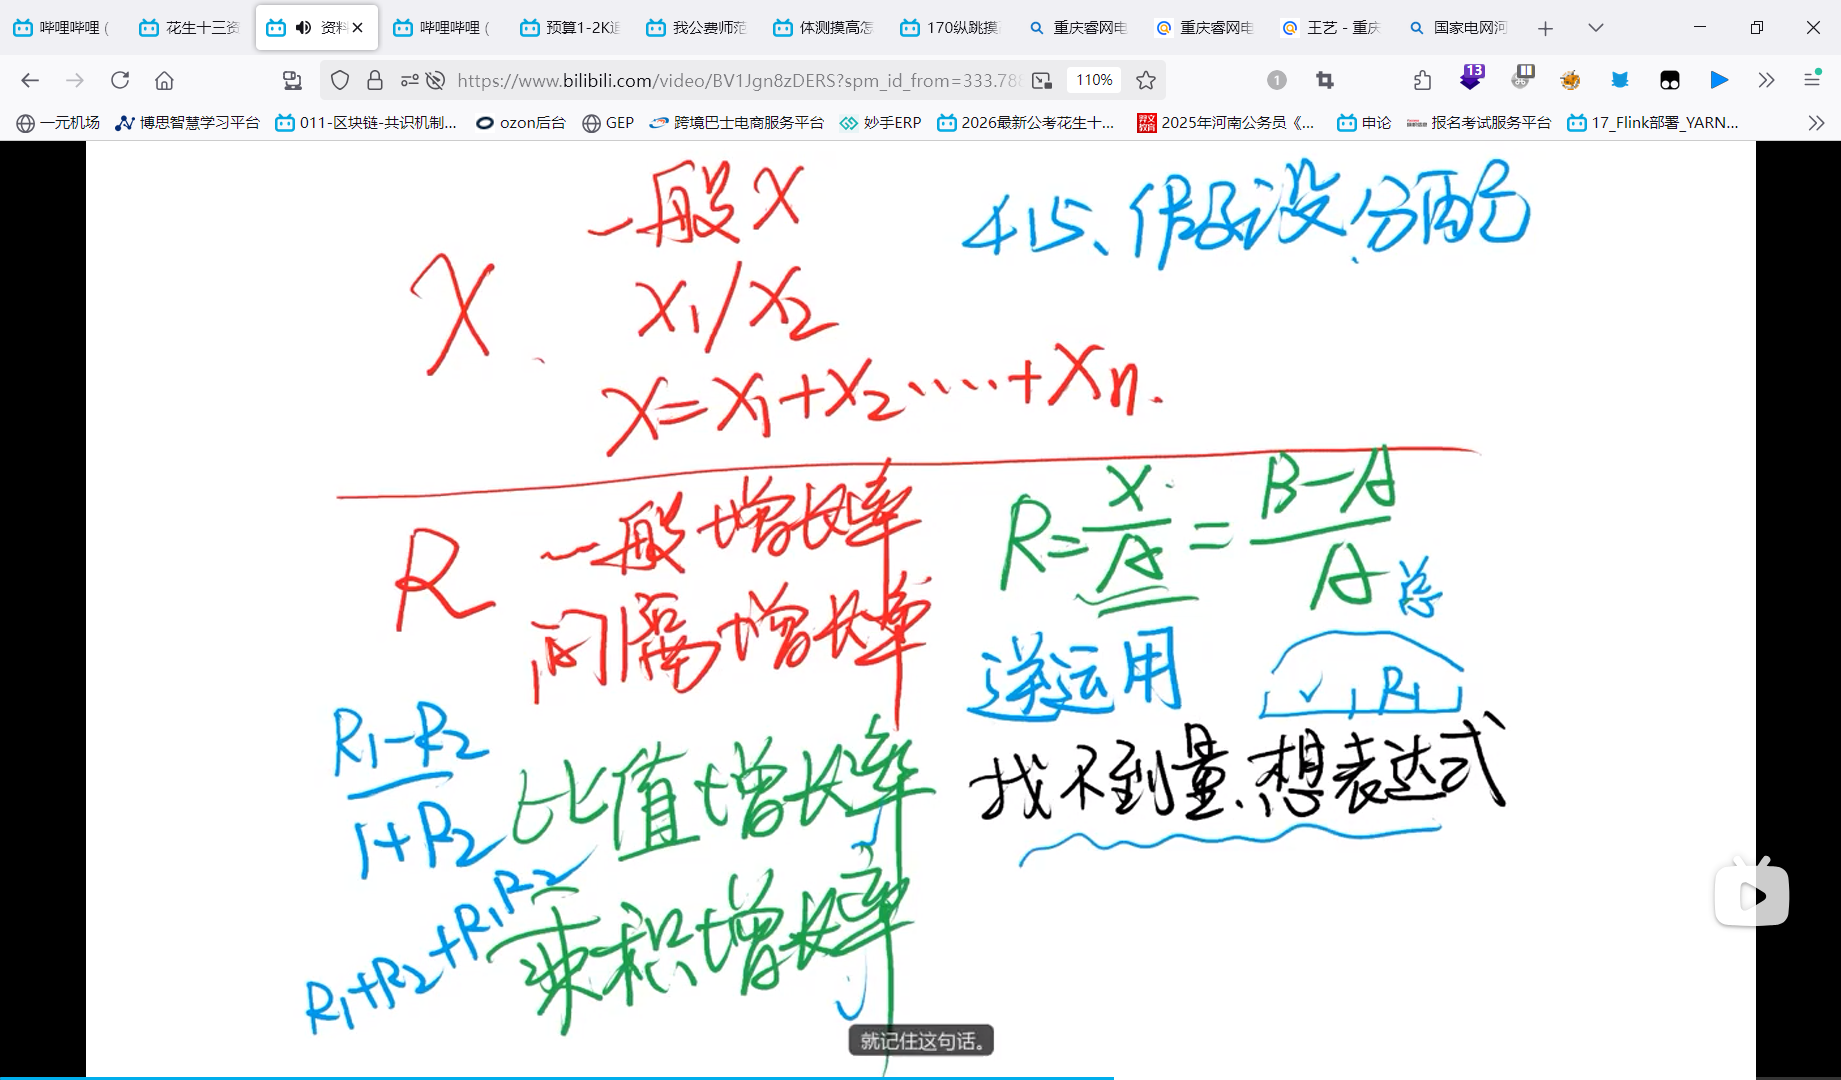 哔哩哔哩 (
花生十三资
资料
哔哩哔哩 (
预算1-2K近
我公费师范
体测摸高怎
170纵跳摸
重庆睿网电
重庆睿网电
王艺 - 重庆
国家电网河
https://www.bilibili.com/video/BV1Jgn8zDERS?spm_id_from=333.788
110%
1
13
一元机场
博思智慧学习平台
011-区块链-共识机制...
ozon后台
GEP
跨境巴士电商服务平台
妙手ERP
2026最新公考花生十...
2025年河南公务员《...
申论
报名考试服务平台
17_Flink部署_YARN...
一般X
415、假设分配
X
X1/X2
X=X1+X2……+Xn.
R
一般增长率
R=X/A=(B-A)/A
间隔增长率
总
逆运用
✓, R1
R1-R2
1+R2
比值增长率
找不到量、想表达式
R1+R2+R1R2
乘积增长率
就记住这句话。